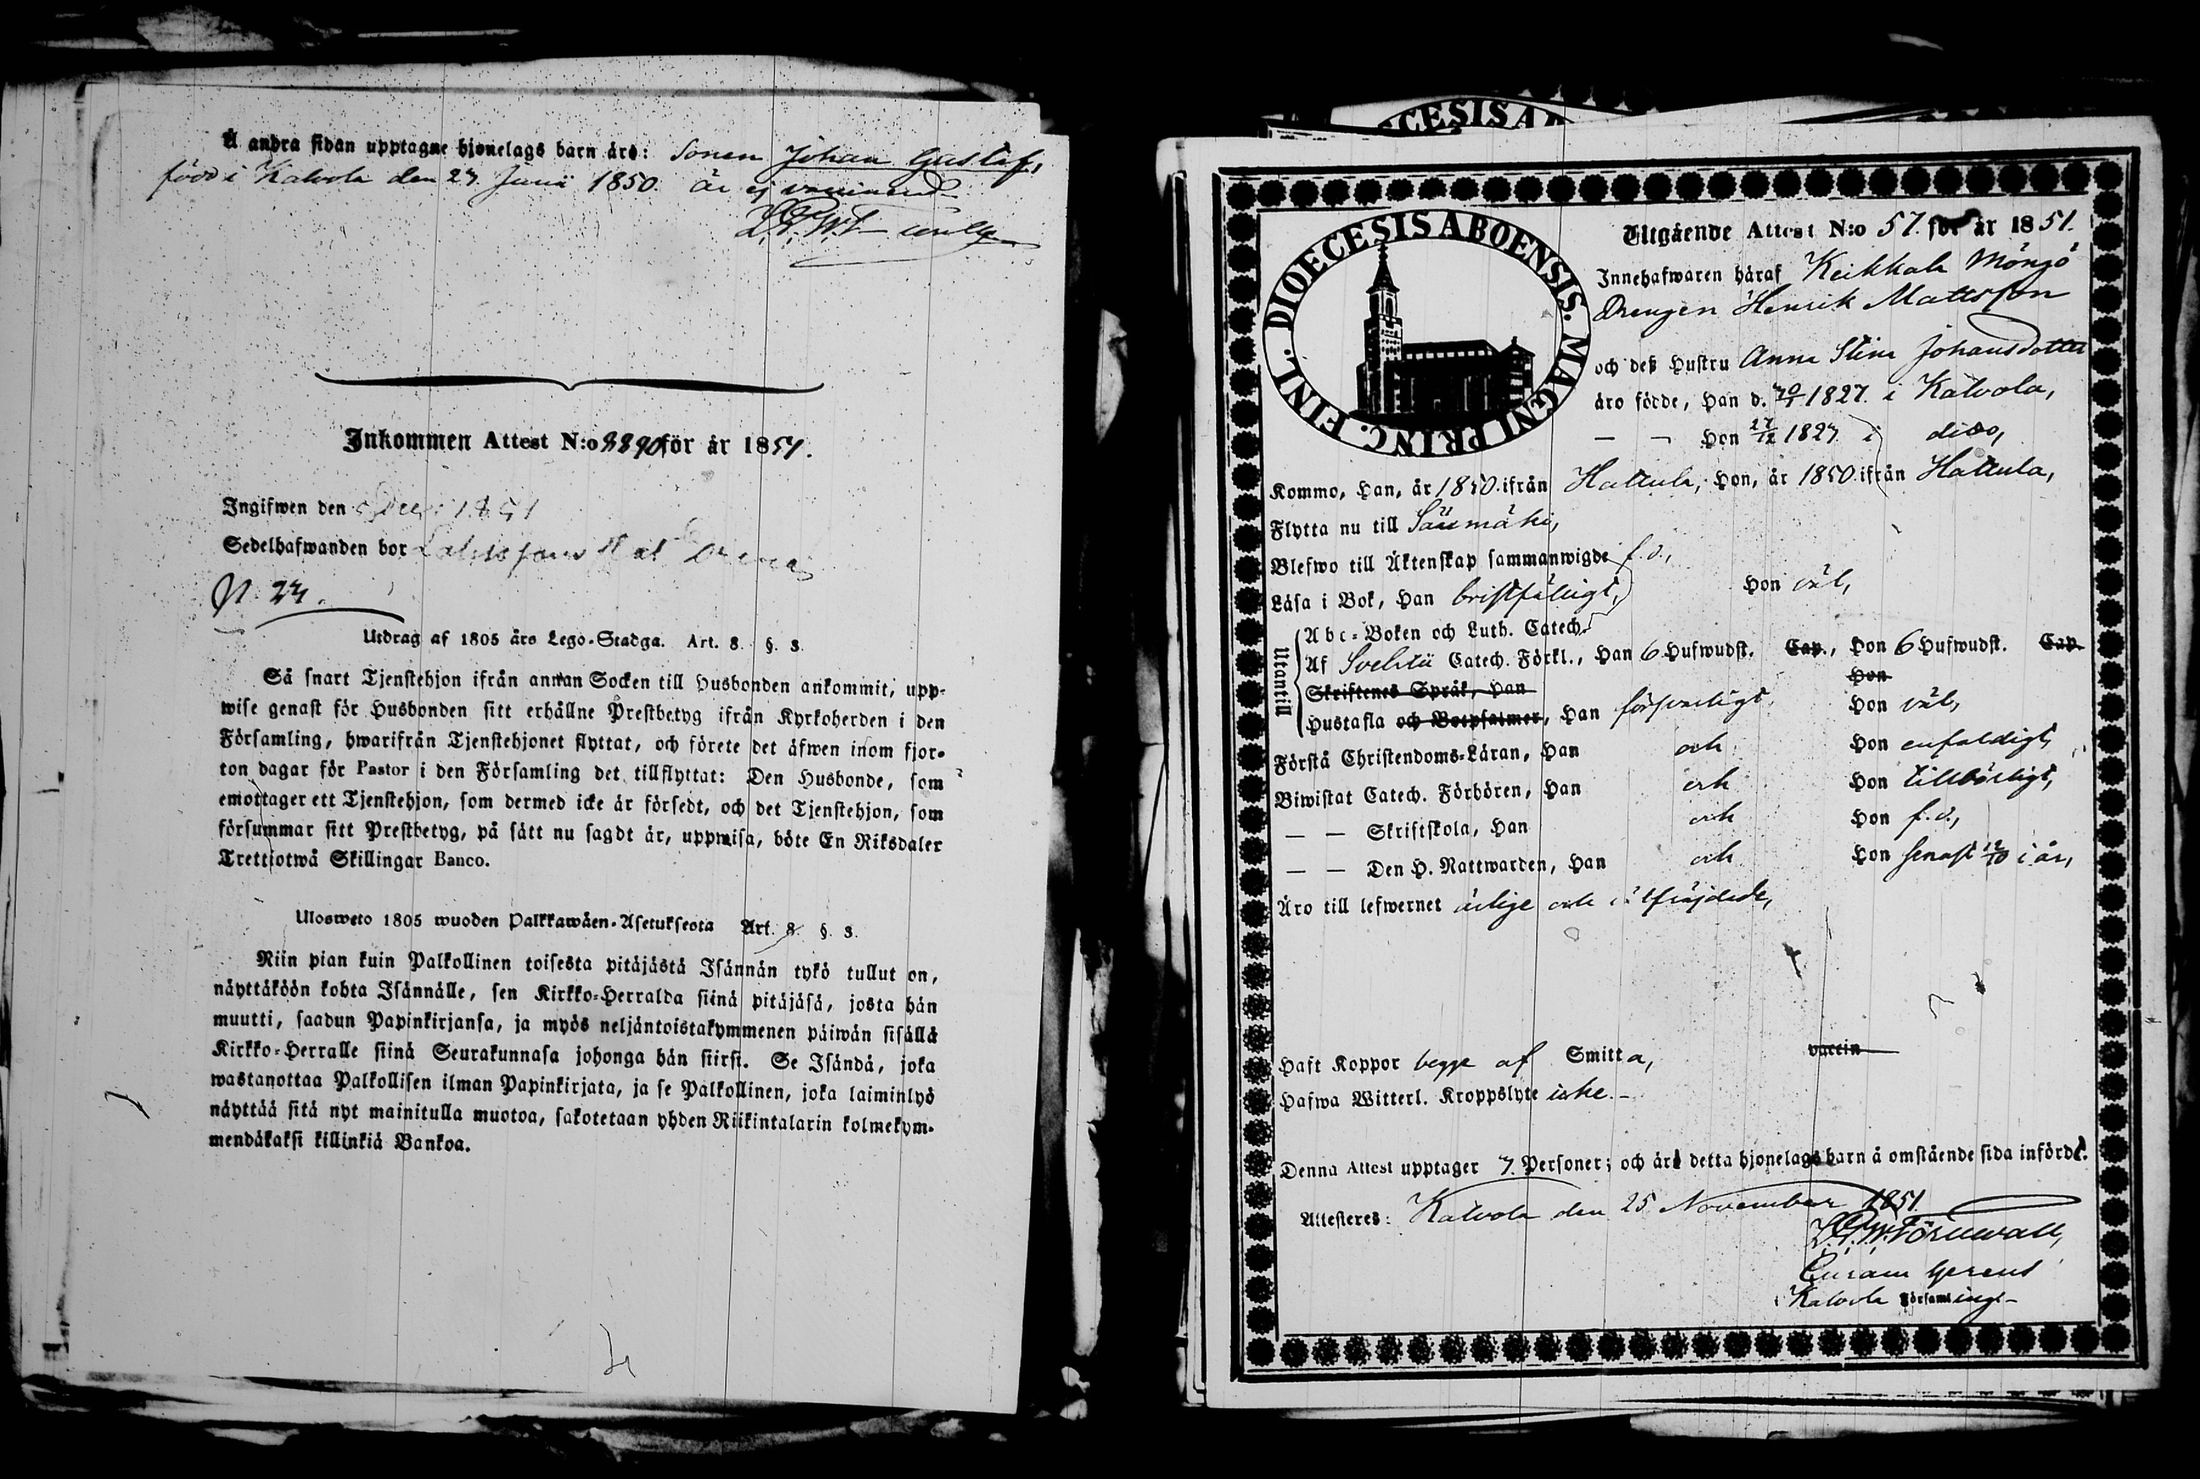 Å andra sidan upptagne hjonelags barn äro: Sonen Johan Gustaf,
född i Kalvola den 27 Junii 1850. är ej vaccinerad

Inkommen Attest N:o för år 1851.
Ingifwen den Dec: 1851
Sedelhafwanden bor
N. 27.
Utdrag af 1805 års Lego-Stadga. Art. 8. §. 3.
Så snart Tjenstehjon ifrån annan Socken till Husbonden ankommit, upp-
wise genast för Husbonden sitt erhållne Prestbetyg ifrån Kyrkoherden i den
Församling, hwarifrån Tjenstehjonet flyttat, och förete det äfwen inom fjor-
ton dagar för Pastor i den Församling det tillflyttat: Den Husbonde, som
emottager ett Tjenstehjon, som dermed icke är försedt, och det Tjenstehjon, som
försummar sitt Prestbetyg, på sätt nu sagdt är, uppwisa, böte En Riksdaler
Trettiotwå Skillingar Banco.
Ulosweto 1805 wuoden Palkkawäen-Asetuksesta Art. 8. §. 3.
Niin pian kuin Palkollinen toisesta pitäjästä Isännän tykö tullut on,
näyttäköön kohta Isännälle, sen Kirkko-Herralda siinä pitäjäsä, josta hän
muutti, saadun Papinkirjansa, ja myös neljäntoistakymmenen päiwän sisällä
Kirkko-Herralle siinä Seurakunnasa johonga hän siirsi. Se Isändä, joka
wastanottaa Palkollisen ilman Papinkirjata, ja se Palkollinen, joka laiminlyö
näyttää sitä nyt mainitulla muotoa, sakotetaan yhden Riikintalarin kolmekym-
mendäkaksi killinkiä Bankoa.

DIOECESIS ABOENSIS. MAGNI PRINC. FINL.
Utgående Attest N:o 57. för år 1851.
Innehafwaren häraf Keikkala Möngö
Drengen Henrik Mattsson
och deß Hustru Anna Stina Johansdotter
äro födde, Han d. 1827. i Kalvola,
— — Hon 27/12 1827. i dito,
Kommo, Han, år 1850. ifrån Hattula, Hon, år 1850. ifrån Hattula,
Flytta nu till Sääxmäki,
Blefwo till Äktenskap sammanwigde f. å.,
Läsa i Bok, Han bristfälligt, Hon väl,
Utantill
Abc-Boken och Luth. Catech.
Af Svebilii Catech. Förkl., Han 6 Hufwudst. Cap., Hon 6 Hufwudst. Cap.
Skriftenes Språk, Han Hon
Hustafla och Botpsalmer, Han försvarligt, Hon väl,
Förstå Christendoms-Läran, Han och Hon enfaldigt,
Biwistat Catech. Förhören, Han och Hon tillbörligt,
— — Skriftskola, Han och Hon f. å.,
— — Den H. Nattwarden, Han och Hon senast 12/10 i år,
Äro till lefwernet ärlige och välfräjdade,
Haft Koppor begge af Smitta, vaccin
Hafwa Witterl. Kroppslyte icke. –
Denna Attest upptager Personer; och äro detta hjonelags barn å omstående sida införde.
Attesteres: Kalvola den 25 November 1851
Törnwall,
Curam gerens
Kalvola Församling –